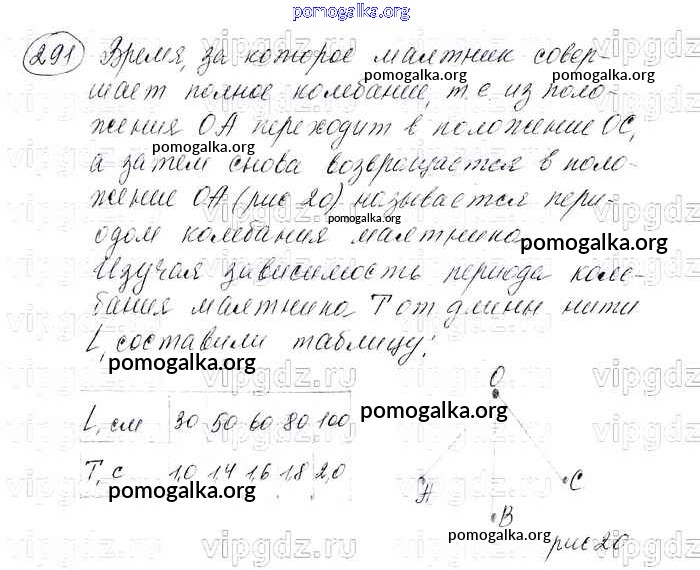 pomogalka.org
291 Время, за которое маятник совер-
pomogalka.org
шает полное колебание, т.е из поло-
pomogalka.org
жения ОА переходит в положение ОС,
а затем снова возвращается в поло-
жение ОА (рис 20) называется пери-
pomogalka.org
одом колебания маятника
pomogalka.org
Изучая зависимость периода коле-
бания маятника Т от длины нити
L, составили таблицу:
pomogalka.org
O
L, см 30 50 60 80 100
pomogalka.org
Т, с 1,0 1,4 1,6 1,8 2,0
pomogalka.org
pomogalka.org
А
С
В
pomogalka.org
рис 20
vipgdz.ru